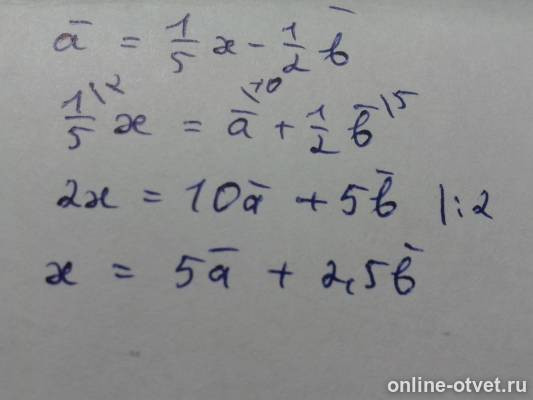 a̅ = 1/5 x - 1/2 b̅
1/5 \2 x = a̅ \10 + 1/2 b̅ \5
2x = 10a̅ + 5b̅ |:2
x = 5a̅ + 2,5b̅
online-otvet.ru